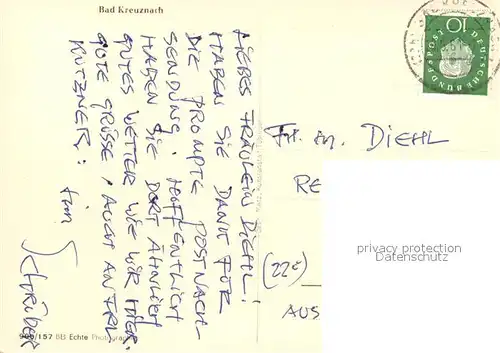 Bad Kreuznach
LIEBES FRÄULEIN DIEHL!
HABEN SIE DANK FÜR
DIE PROMPTE POSTNACH-
SENDUNG. HOFFENTLICH
HABEN SIE DORT ÄHNLICH
GUTES WETTER WIE WIR HIER.
GUTE GRÜSSE / AUCH AN FRL.
KUTZNER:
Ihr
Schreiber
900/157 BB Echte Photograp
DEUTSCHE BUNDESPOST
10
Frl. M. DIEHL
RE
(22c)
AUS
privacy protection
Datenschutz